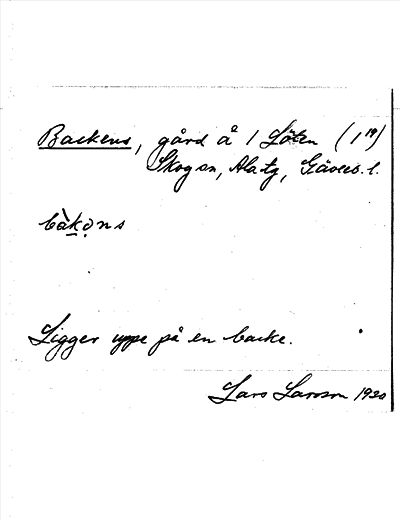 Backens, gård å 1 Löten (1¹⁹)
Skogen, Gävleb. l.
bàko̤ns
Ligger uppe på en backe.
Lars Larsson 1930